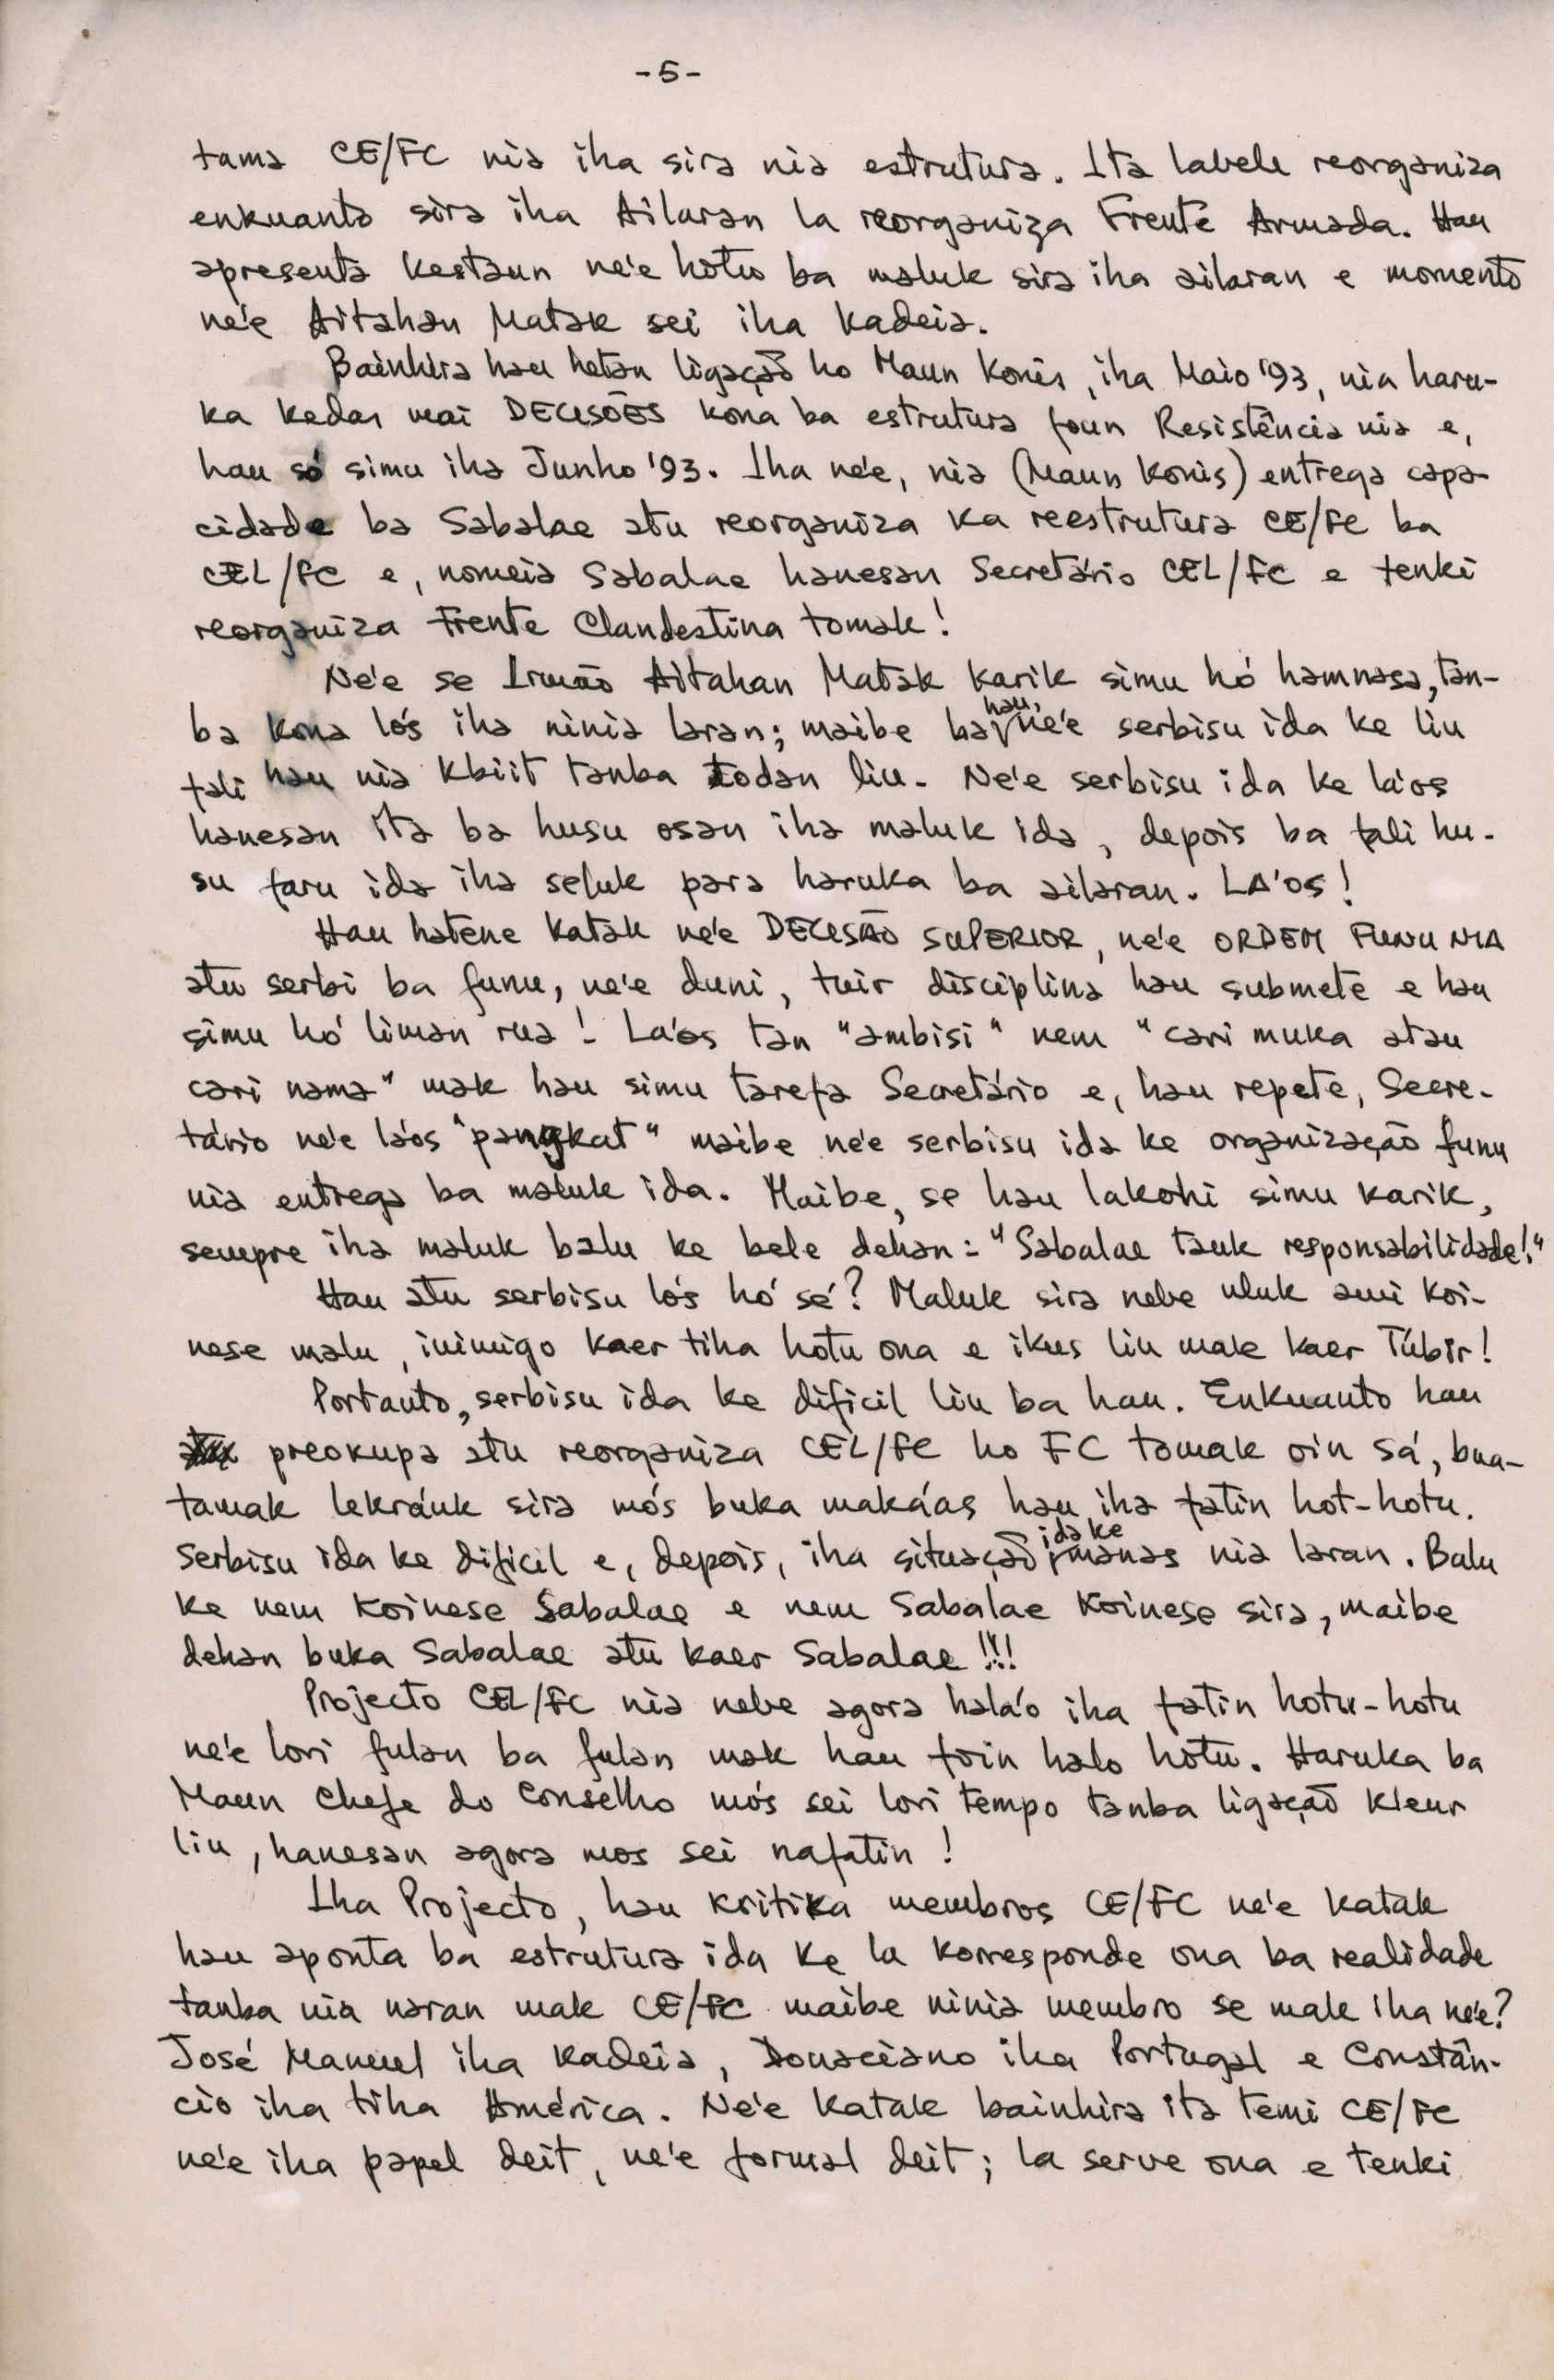 -5-
tama CE/FC nia iha sira nia estrutura. Ita labele reorganiza
enkuanto sira iha Ailaran la reorganiza Frente Armada. Hau
apresenta kestaun ne'e hotu ba maluk sira iha ailaran e momento
ne'e Aitahan Matak sei iha kadeia.
Bainhira hau hetan ligação ho Maun Konis, iha Maio '93, nia haru-
ka kedas mai DECISÕES kona ba estrutura foun Resistência nia e,
hau só simu iha Junho '93. Iha ne'e, nia (Maun Konis) entrega capa-
cidade ba Sabalae atu reorganiza ka reestrutura CE/FC ba
CEL/FC e, nomeia Sabalae hanesan Secretário CEL/FC e tenki
reorganiza Frente Clandestina tomak!
Ne'e se Irmão Aitahan Matak karik simu hó hamnasa, tan-
ba kona lós iha ninia laran; maibe ba hau, ne'e serbisu ida ke liu
tali hau nia kbiit tanba todan liu. Ne'e serbisu ida ke la'os
hanesan ita ba husu osan iha maluk ida, depois ba fali hu-
su faru ida iha seluk para haruka ba ailaran. LA'OS!
Hau hatene katak ne'e DECISÃO SUPERIOR, ne'e ORDEM FUNU NIA
atu serbi ba funu, ne'e duni, tuir disciplina hau submete e hau
simu hó liman rua! La'os tan "ambisi" nem "cari muka atau
cari nama" mak hau simu tarefa Secretário e, hau repete, Secre-
tário ne'e la'os "pangkat" maibe ne'e serbisu ida ke organização funu
nia entrega ba maluk ida. Maibe, se hau lakohi simu karik,
sempre iha maluk balu ke bele dehan: "Sabalae tauk responsabilidade!"
Hau atu serbisu lós hó sé? Maluk sira nebe uluk ami koi-
nese malu, inimigo kaer tiha hotu ona e ikus liu mak kaer Túbir!
Portanto, serbisu ida ke dificil liu ba hau. Enkuanto hau
preokupa atu reorganiza CEL/FC ho FC tomak oin sá, bua-
tamak lekráuk sira mós buka maka'as hau iha fatin hot-hotu.
Serbisu ida ke dificil e, depois, iha situação ida ke manas nia laran. Balu
ke nem koinese Sabalae e nem Sabalae koinese sira, maibe
dehan buka Sabalae atu kaer Sabalae!!!
Projecto CEL/FC nia nebe agora hala'o iha fatin hotu-hotu
ne'e lori fulan ba fulan mak hau foin halo hotu. Haruka ba
Maun Chefe do Conselho mós sei lori tempo tanba ligação kleur
liu, hanesan agora mos sei nafatin!
Iha Projecto, hau kritika membros CE/FC ne'e katak
hau aponta ba estrutura ida ke la korresponde ona ba realidade
tanba nia naran mak CE/FC maibe ninia membro se mak iha ne'e?
José Manuel iha kadeia, Donaciano iha Portugal e Constân-
cio iha tiha América. Ne'e katak bainhira ita temi CE/FC
ne'e iha papel deit, ne'e formal deit; la serve ona e tenki